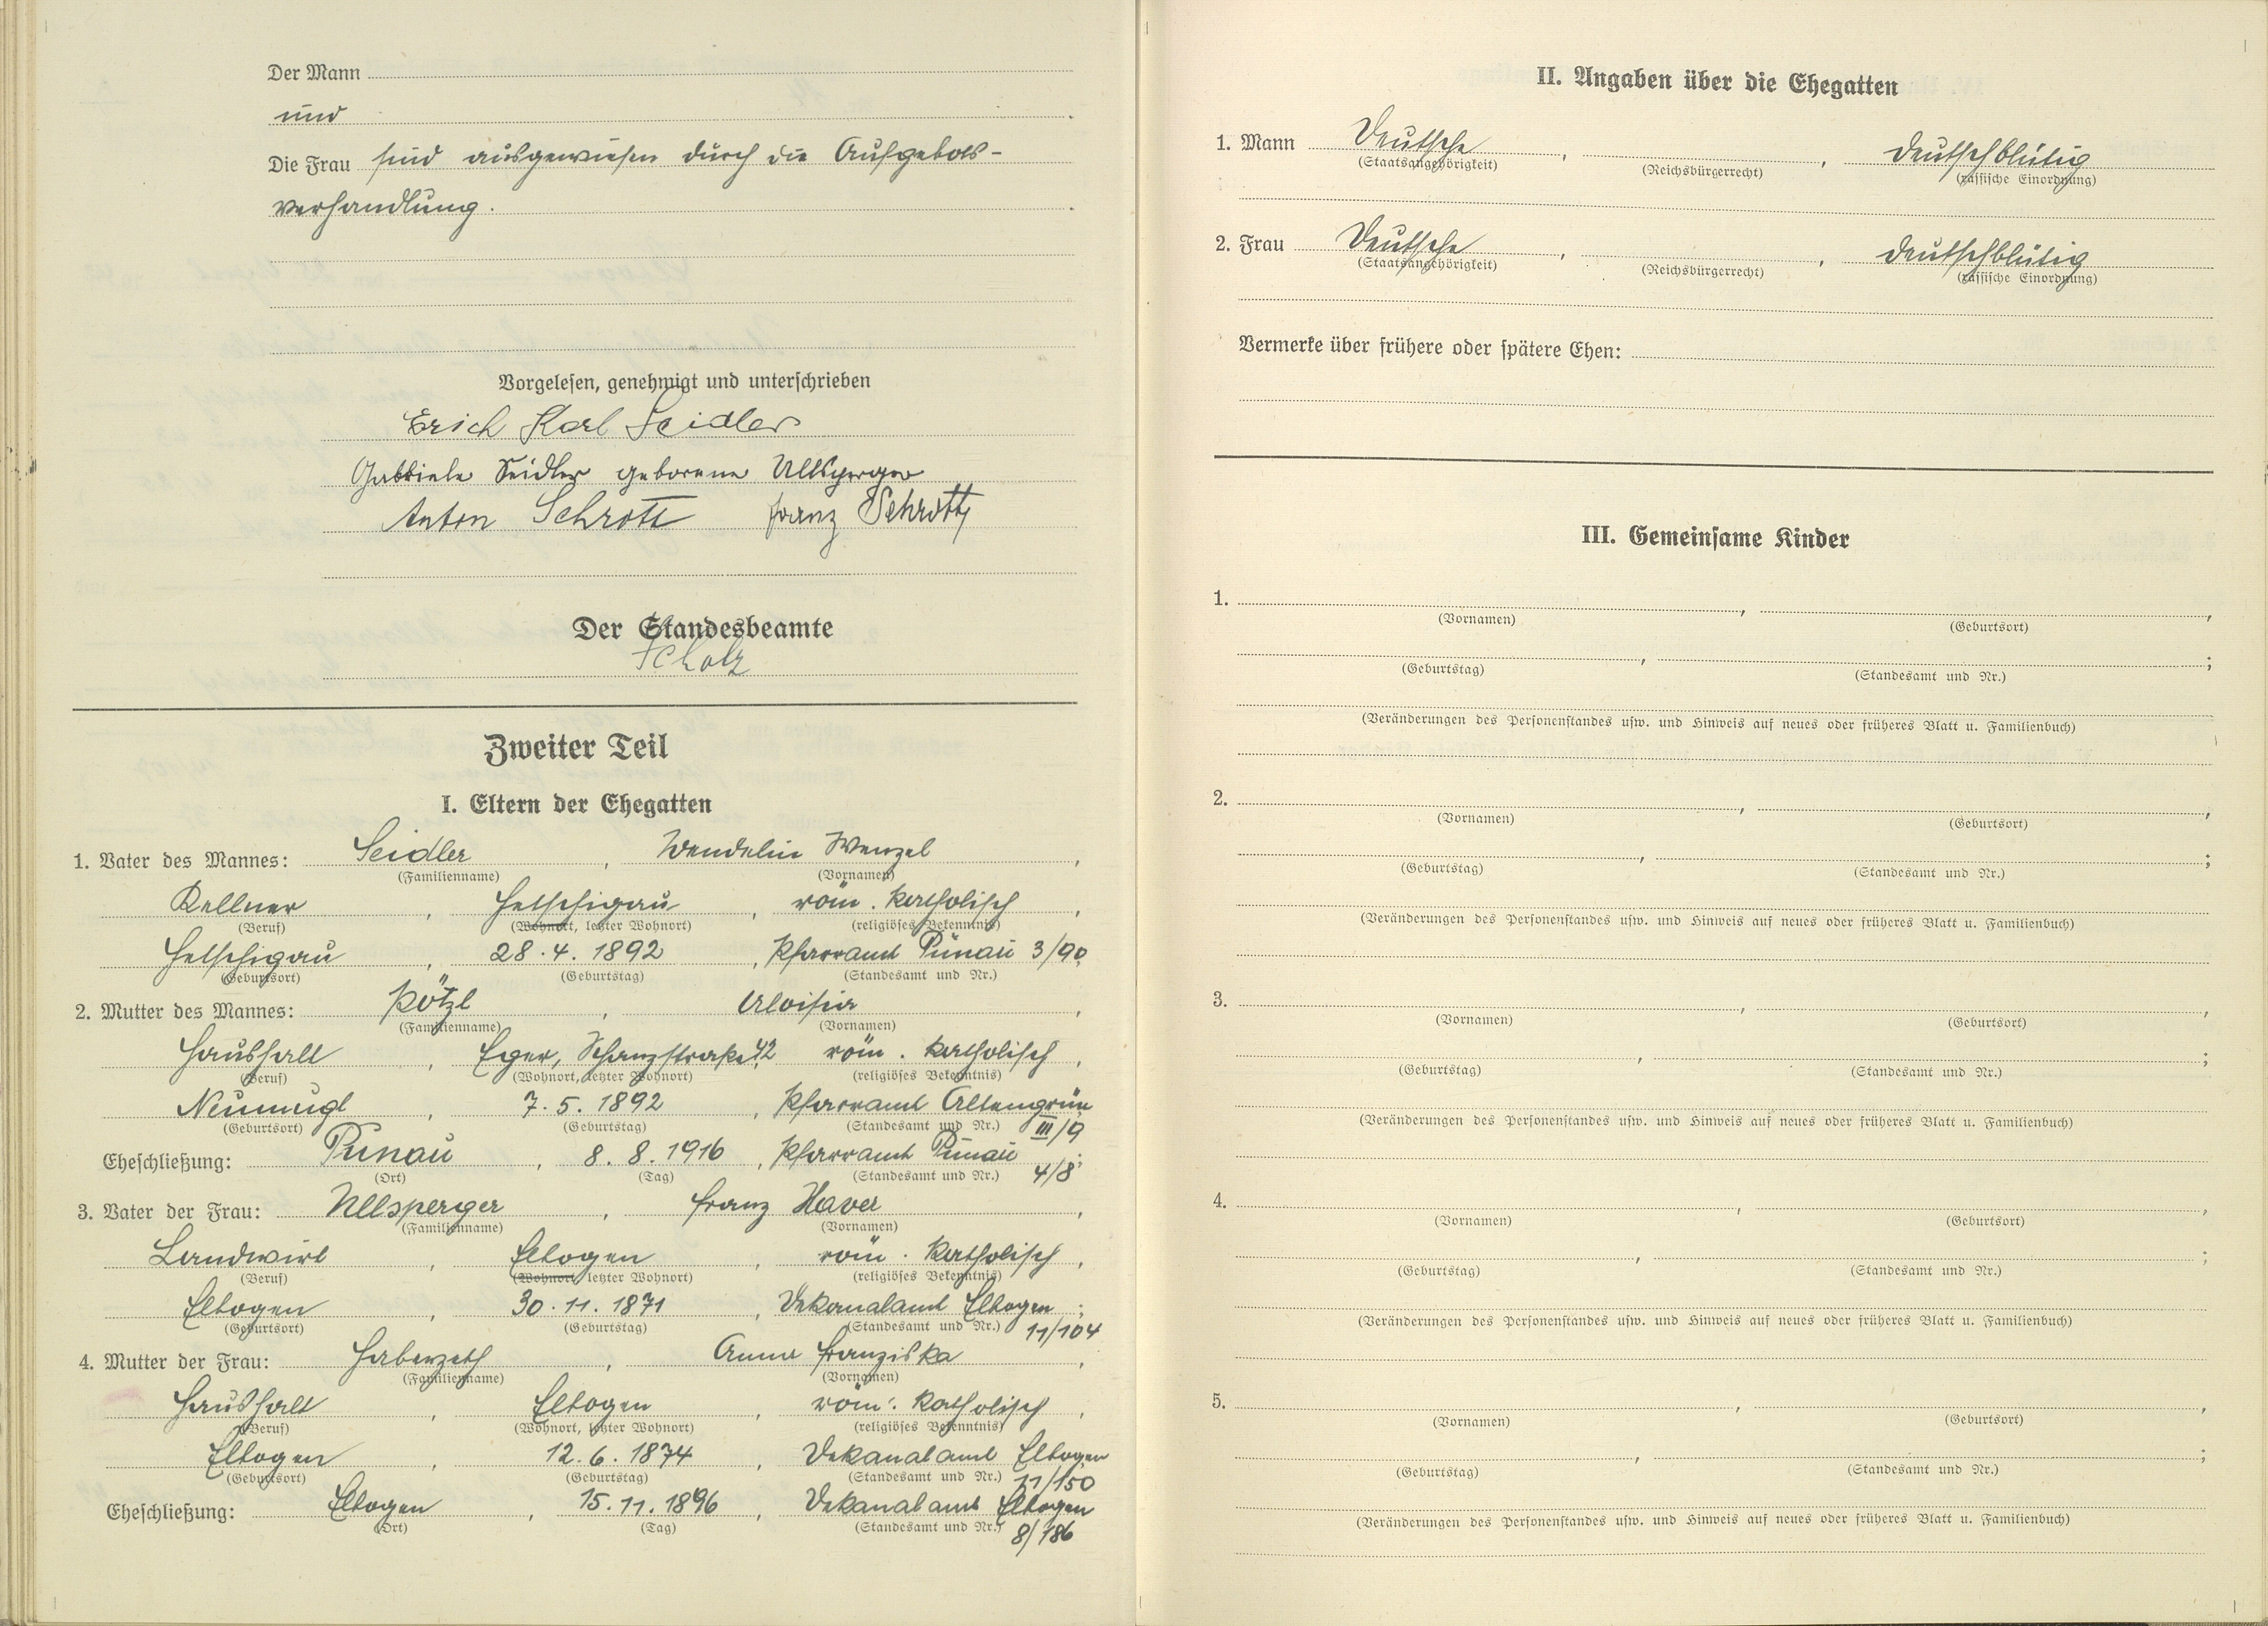 Der Mann
und
Die Frau sind ausgewiesen durch die Aufgebots-
verhandlung.
Vorgelesen, genehmigt und unterschrieben
Erich Karl Seidler
Gabriele Seidler geborene Ullsperger
Anton Schrott Franz Schrott
Der Standesbeamte
Scholz
Zweiter Teil
I. Eltern der Ehegatten
1. Vater des Mannes: Seidler, Wendelin Wenzel,
(Familienname) (Vornamen)
Kellner, Hetschigau, röm. katholisch,
(Beruf) (Wohnort, letzter Wohnort) (religiöses Bekenntnis)
Hetschigau, 28.4.1892, Pfarramt Punau 3/90,
(Geburtsort) (Geburtstag) (Standesamt und Nr.)
2. Mutter des Mannes: Pötzl, Aloisia,
(Familienname) (Vornamen)
Haushalt, Eger, Schanzstraße 42, röm. katholisch,
(Beruf) (Wohnort, letzter Wohnort) (religiöses Bekenntnis)
Neumugl, 7.5.1892, Pfarramt Altengrün
(Geburtsort) (Geburtstag) (Standesamt und Nr.) III/9
Eheschließung: Punau, 8.8.1916, Pfarramt Punau
(Ort) (Tag) (Standesamt und Nr.) 4/8;
3. Vater der Frau: Ullsperger, Franz Xaver,
(Familienname) (Vornamen)
Landwirt, Elbogen, röm. katholisch,
(Beruf) (Wohnort, letzter Wohnort) (religiöses Bekenntnis)
Elbogen, 30.11.1871, Dekanalamt Elbogen;
(Geburtsort) (Geburtstag) (Standesamt und Nr.) 11/104
4. Mutter der Frau: Haberzeth, Anna Franziska,
(Familienname) (Vornamen)
Haushalt, Elbogen, röm. katholisch,
(Beruf) (Wohnort, letzter Wohnort) (religiöses Bekenntnis)
Elbogen, 12.6.1874, Dekanalamt Elbogen
(Geburtsort) (Geburtstag) (Standesamt und Nr.) 11/150
Eheschließung: Elbogen, 15.11.1896, Dekanalamt Elbogen
(Ort) (Tag) (Standesamt und Nr.) 8/186
II. Angaben über die Ehegatten
1. Mann Deutsche, , deutschblütig
(Staatsangehörigkeit) (Reichsbürgerrecht) (rassische Einordnung)
2. Frau Deutsche, , deutschblütig
(Staatsangehörigkeit) (Reichsbürgerrecht) (rassische Einordnung)
Vermerke über frühere oder spätere Ehen:
III. Gemeinsame Kinder
1. , ,
(Vornamen) (Geburtsort)
, ;
(Geburtstag) (Standesamt und Nr.)
(Veränderungen des Personenstandes usw. und Hinweis auf neues oder früheres Blatt u. Familienbuch)
2. , ,
(Vornamen) (Geburtsort)
, ;
(Geburtstag) (Standesamt und Nr.)
(Veränderungen des Personenstandes usw. und Hinweis auf neues oder früheres Blatt u. Familienbuch)
3. , ,
(Vornamen) (Geburtsort)
, ;
(Geburtstag) (Standesamt und Nr.)
(Veränderungen des Personenstandes usw. und Hinweis auf neues oder früheres Blatt u. Familienbuch)
4. , ,
(Vornamen) (Geburtsort)
, ;
(Geburtstag) (Standesamt und Nr.)
(Veränderungen des Personenstandes usw. und Hinweis auf neues oder früheres Blatt u. Familienbuch)
5. , ,
(Vornamen) (Geburtsort)
, ;
(Geburtstag) (Standesamt und Nr.)
(Veränderungen des Personenstandes usw. und Hinweis auf neues oder früheres Blatt u. Familienbuch)